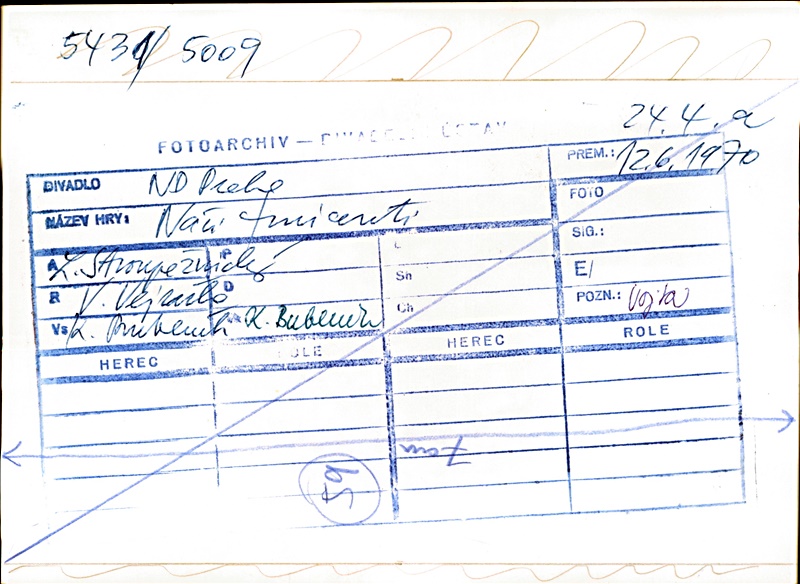 5431/ 5009
24.4. a
FOTOARCHIV — DIVADELNÍ ÚSTAV
PREM.: 12.6.1970
DIVADLO ND Praha
FOTO
NÁZEV HRY: Naši furianti
SIG.:
A L. Stroupežnický P L
R V. Vejražka D Sh E/
Vs K. Bubeník K. Bubeník Ch POZN.: Vojta
HEREC ROLE HEREC ROLE
7cm
56